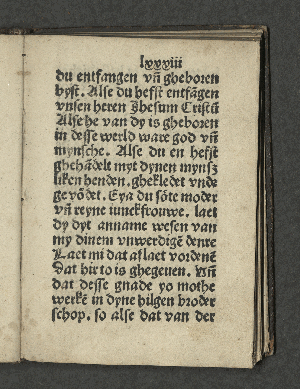 lxxxiii
du entfangen vn̄ gheboren
byst. Alse du hefst entfāgen
vnsen heren Jhesum Cristū
Alse he van dy is gheboren
in desse werld ware god vn̄
mynsche. Alse du en hefst
ghehādelt myt dynen mynsz
liken henden. ghekledet vnde
ge vōdet. Eya du sȯte moder
vn̄ reyne iunckfrouwe. laet
dy dyt anname wesen van
my dinem vnwerdigē denre
Laet mi dat aflaet vordenē
Dat hir to is ghegeuen. Vn̄
dat desse gnade yo mothe
werkē in dyne hilgen broder
schop. so alse dat van der